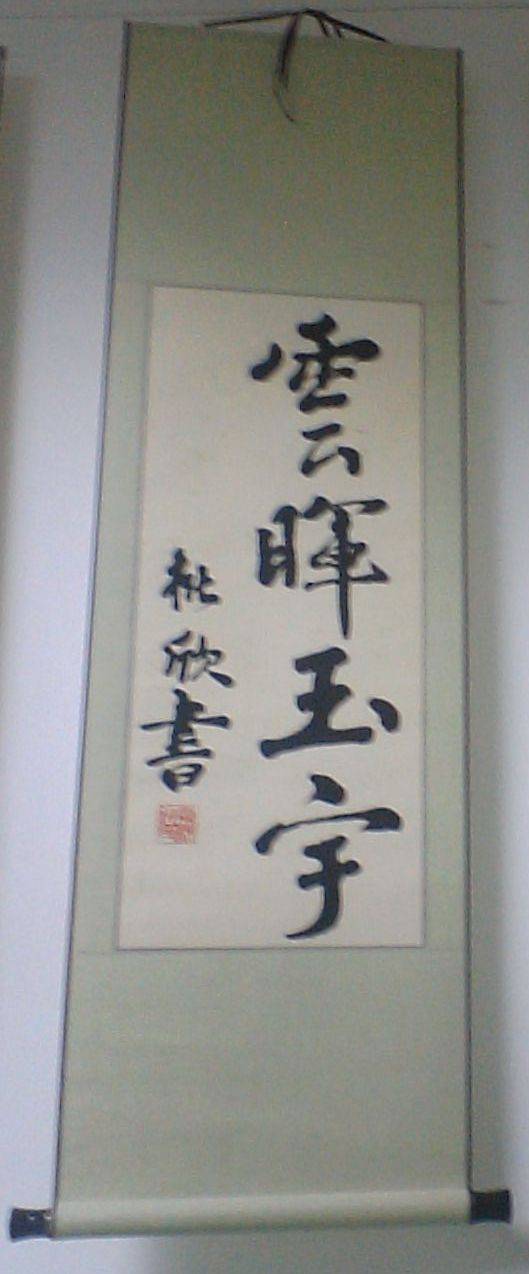 雲暉玉宇
欣書